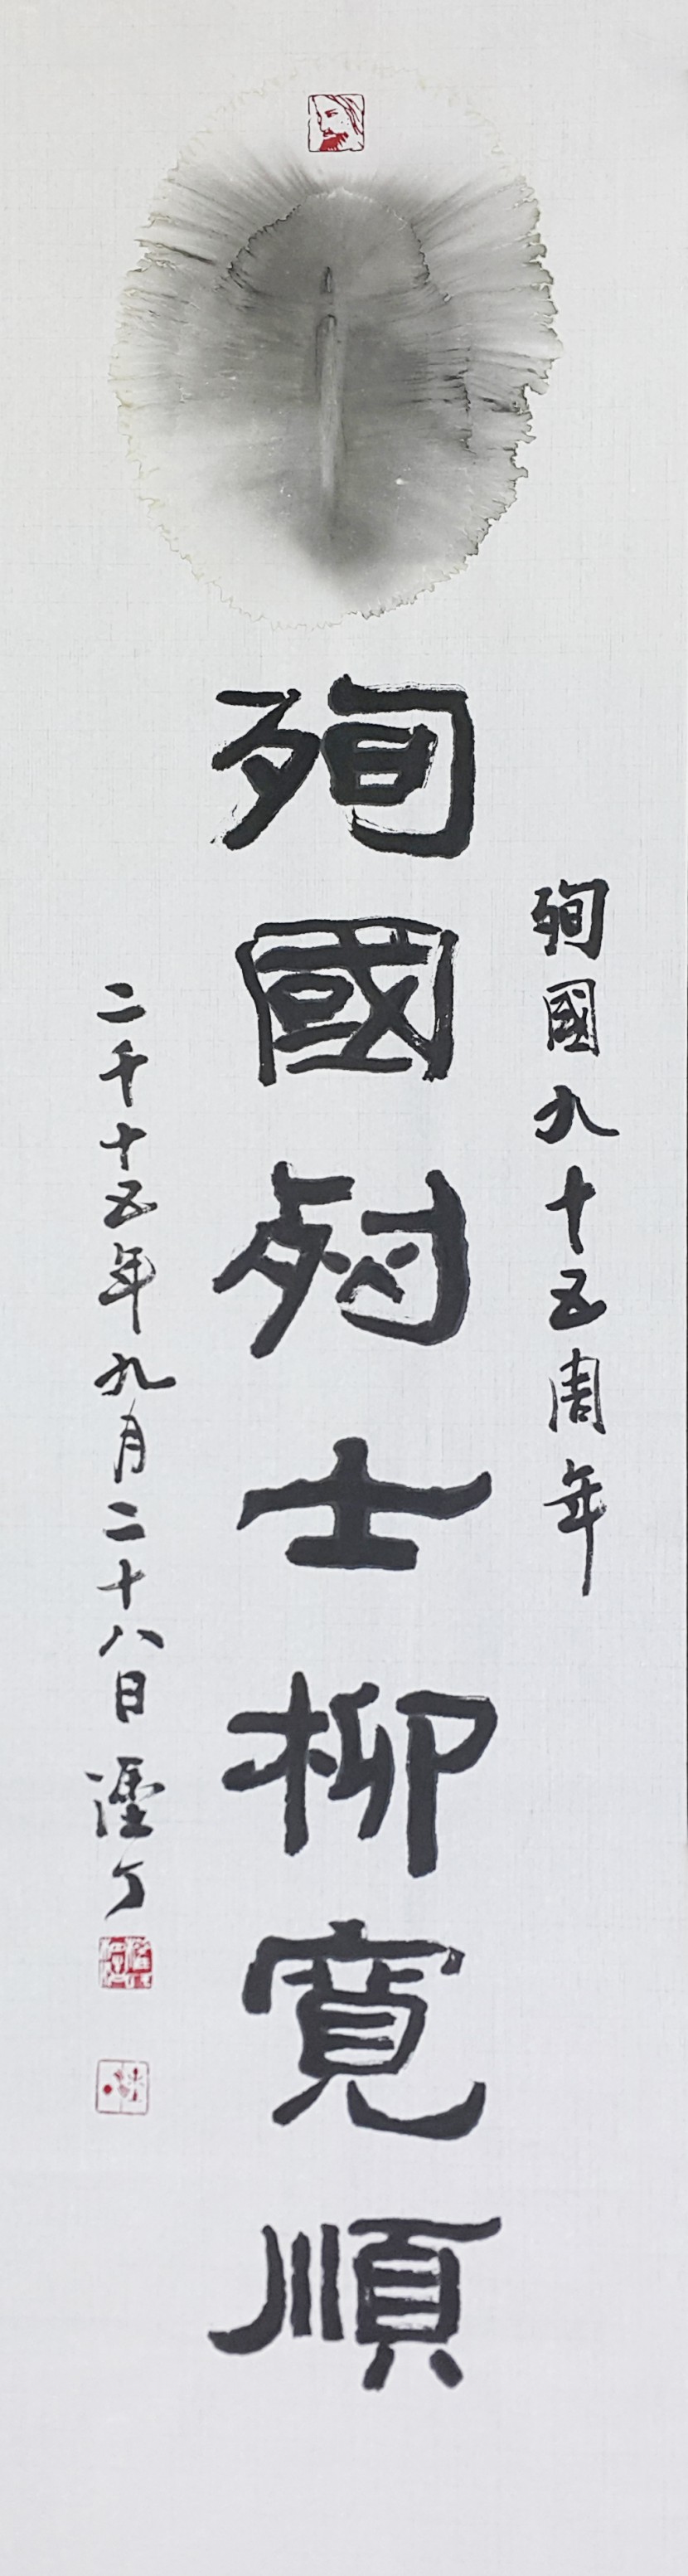 殉國九十五周年
殉國烈士柳寬順
二千十五年九月二十八日